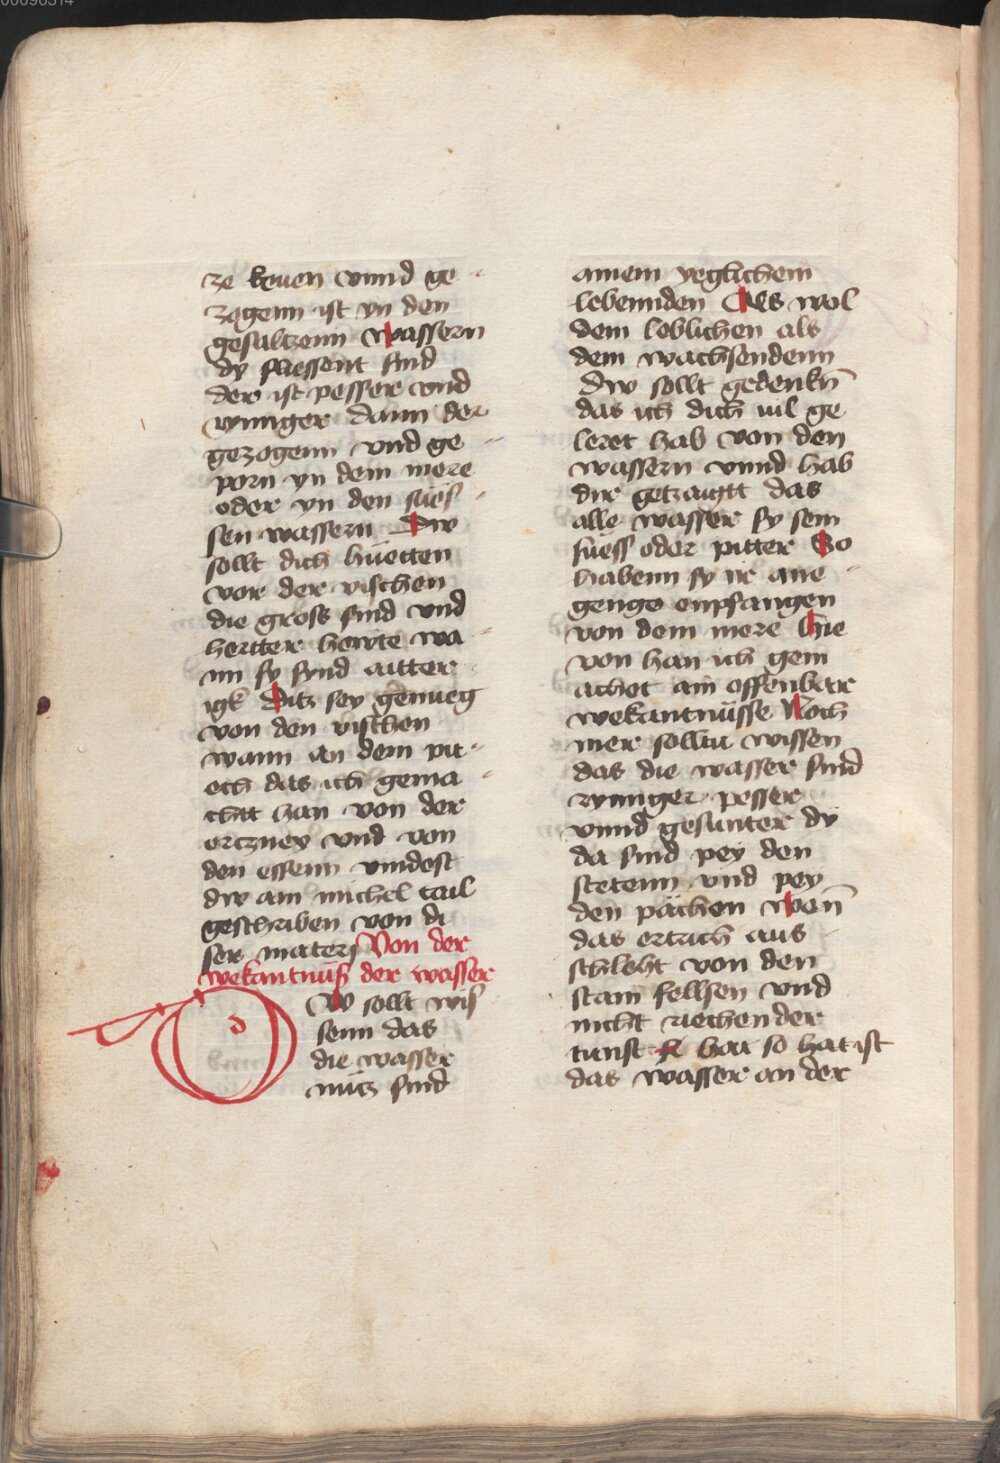 00096314
ze keuen vnnd ge
zogenn ist yn den
gesaltzenn wassern
dy fliessent sind
der ist pesser vnd
rynniger dann der
gezogenn vnd ge
porn yn dem mere
oder yn den suͤes
sen wassern Dw
sollt dich huͤetten
vor der vischen
die gross sind vnd
hertter hewte wa
nn sy synd aitter
igk Ditz sey genueg
von den vischen
wann an dem pu
ech das ich gema
cht han von der
ertzney vnd von
den essenn vindest
dw ain michel tail
geschriben von di
ser matery Von der
wekantnuͤß der wasser
DW sollt wis
senn das
die wasser
nuͤtz sind
ainem yeglichem
lebennden Als wol
dem leblichen als
dem wachsendenn
Dw sollt gedenkn̄
das ich dich uil ge
leret hab von den
wassern vnnd hab
dir getzaigtt das
alle wasser sy sein
suͤess oder pitter So
habenn sy ir ane
genge empfangen
von dem mere Hie
von han ich gem
achet ain offenbar
wekantnuͤsse Noch
mer solltu wissen
das die wasser sind
ryniger pesser
vnnd gesunter dy
da sind pey den
stetenn vnd pey
den paͤchen Wan̄
das ertrich aus
schleht von den
stain fellsen vnd
nicht riechender
tunst hat so hat ist
das wasser an der